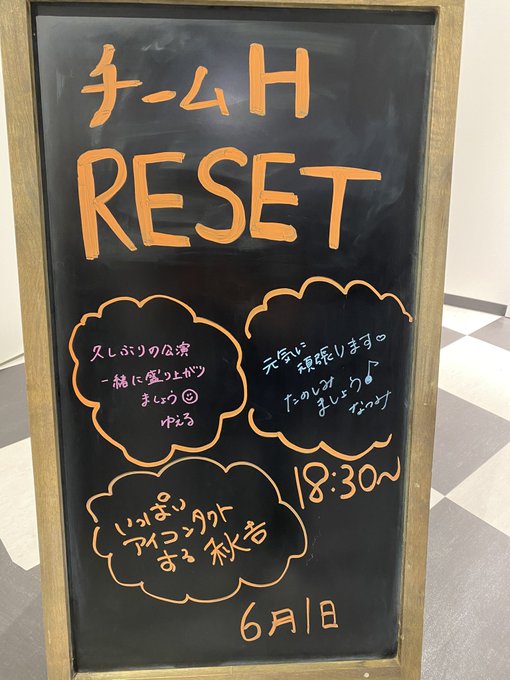 チームH
RESET
久しぶりの公演
一緒に盛り上がり
ましょう☺
ゆえる
元気に
頑張ります♡
たのしみ
ましょう♪
なつみ
18:30~
いっぱい
アイコンタクト
する 秋吉
6月1日